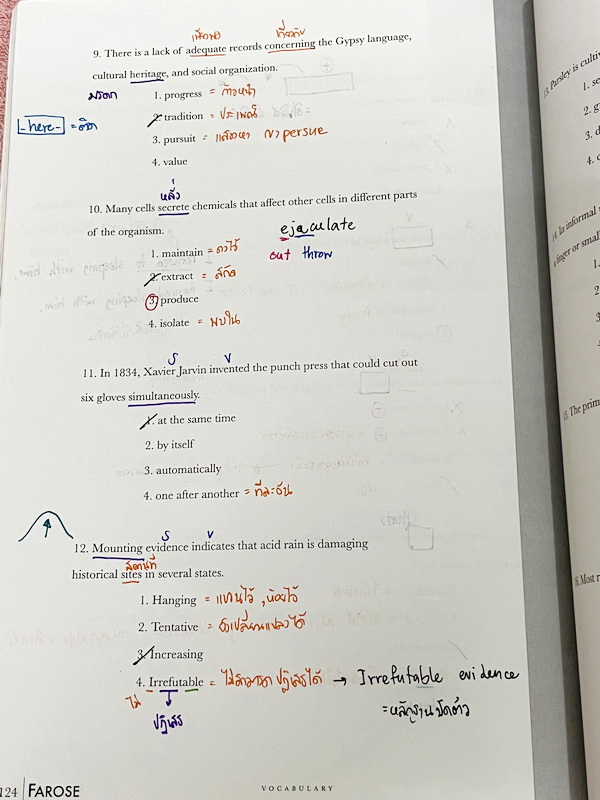 เพียงพอ เกี่ยวกับ
9. There is a lack of adequate records concerning the Gypsy language,
cultural heritage, and social organization.
มรดก 1. progress = ก้าวหน้า
-here- = ติด 2. tradition = ประเพณี
3. pursuit = แสวงหา persue
4. value
หลั่ง
10. Many cells secrete chemicals that affect other cells in different parts
of the organism. ejaculate
1. maintain = คงไว้ out throw
2. extract = สกัด
3. produce
4. isolate =
S V
11. In 1834, Xavier Jarvin invented the punch press that could cut out
six gloves simultaneously.
1. at the same time
2. by itself
3. automatically
4. one after another = ทีละอัน
S V
12. Mounting evidence indicates that acid rain is damaging
สถานที่
historical sites in several states.
1. Hanging = แขวนไว้, ห้อยไว้
2. Tentative = ยังเปลี่ยนแปลงได้
3. Increasing
4. Irrefutable = ไม่สามารถปฏิเสธได้ → Irrefutable evidence
ไม่ ปฏิเสธ = หลักฐานมัดตัว
124 FAROSE VOCABULARY
13. Parsley is
1.
2.
3.
4.
14. In informal
a finger or
1.
2.
3.
15. The prim
16. Most